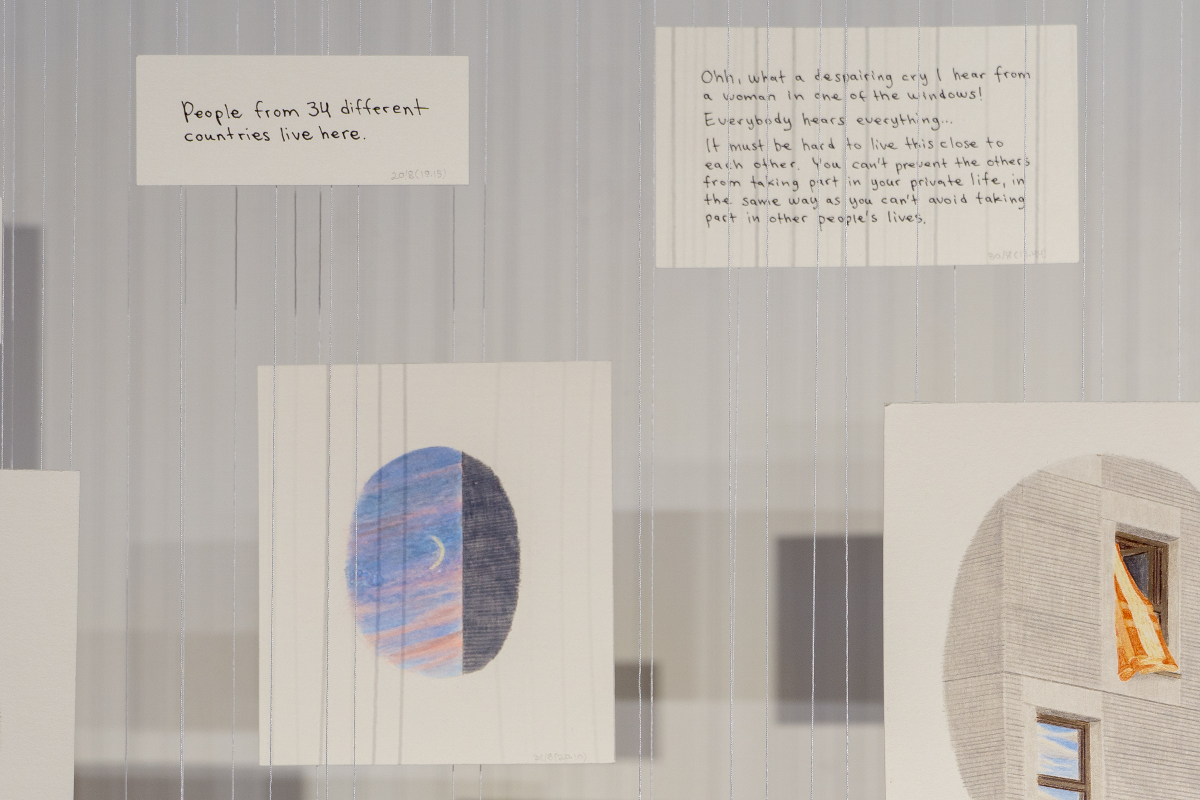 People from 34 different
countries live here.
20'8(19:15)
Ohh, what a despairing cry I hear from
a woman in one of the windows!
Everybody hears everything...
It must be hard to live this close to
each other. You can't prevent the others
from taking part in your private life, in
the same way as you can't avoid taking
part in other people's lives.